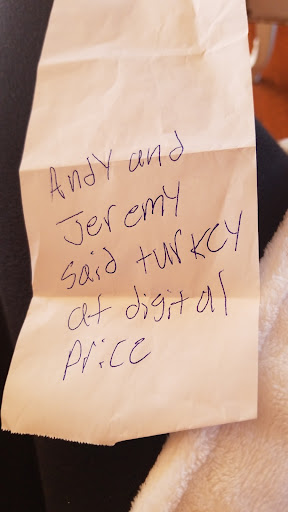 Andy and
Jeremy
said turkey
at digital
price